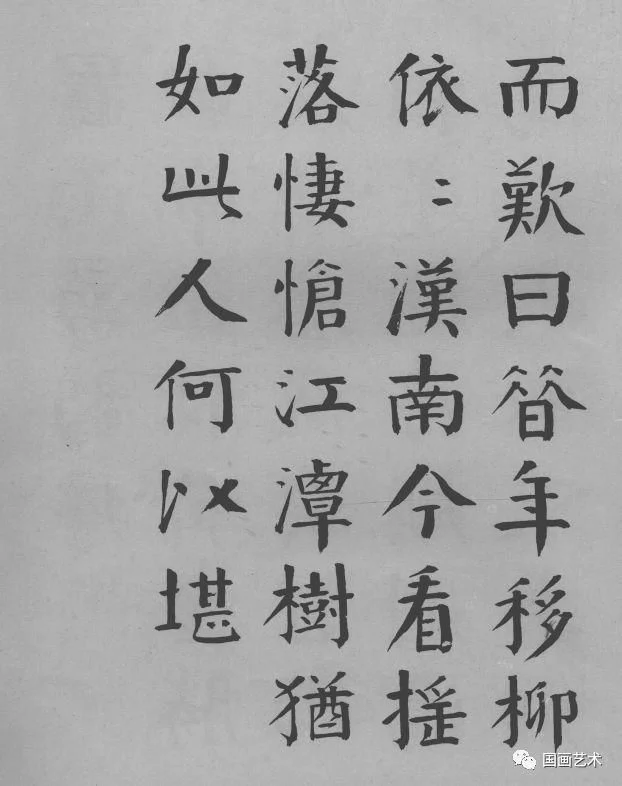 而歎曰昝年移柳
依〻漢南今看摇
落悽愴江潭樹猶
如此人何以堪
国画艺术